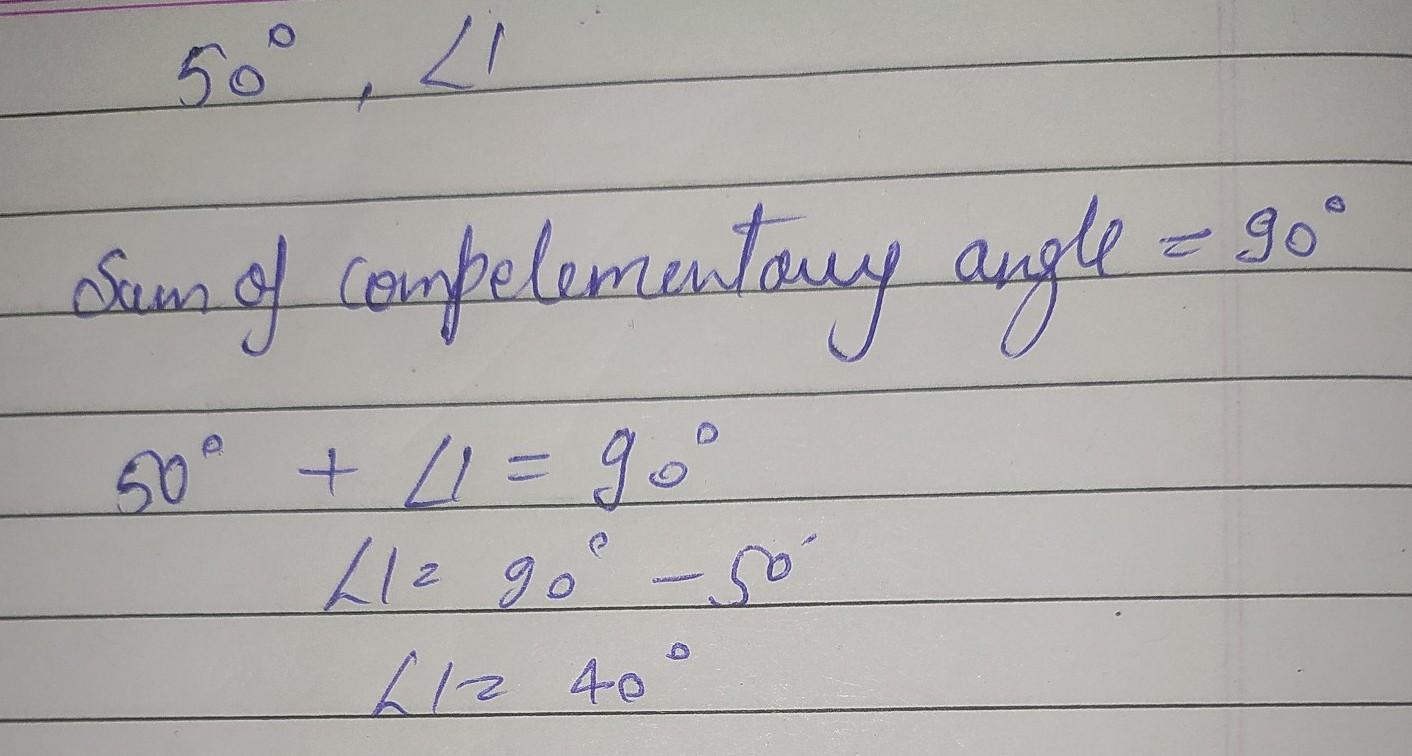 50° , ∠1
Sum of compelementary angle = 90°
50° + ∠1 = 90°
∠1 = 90° - 50°
∠1 = 40°